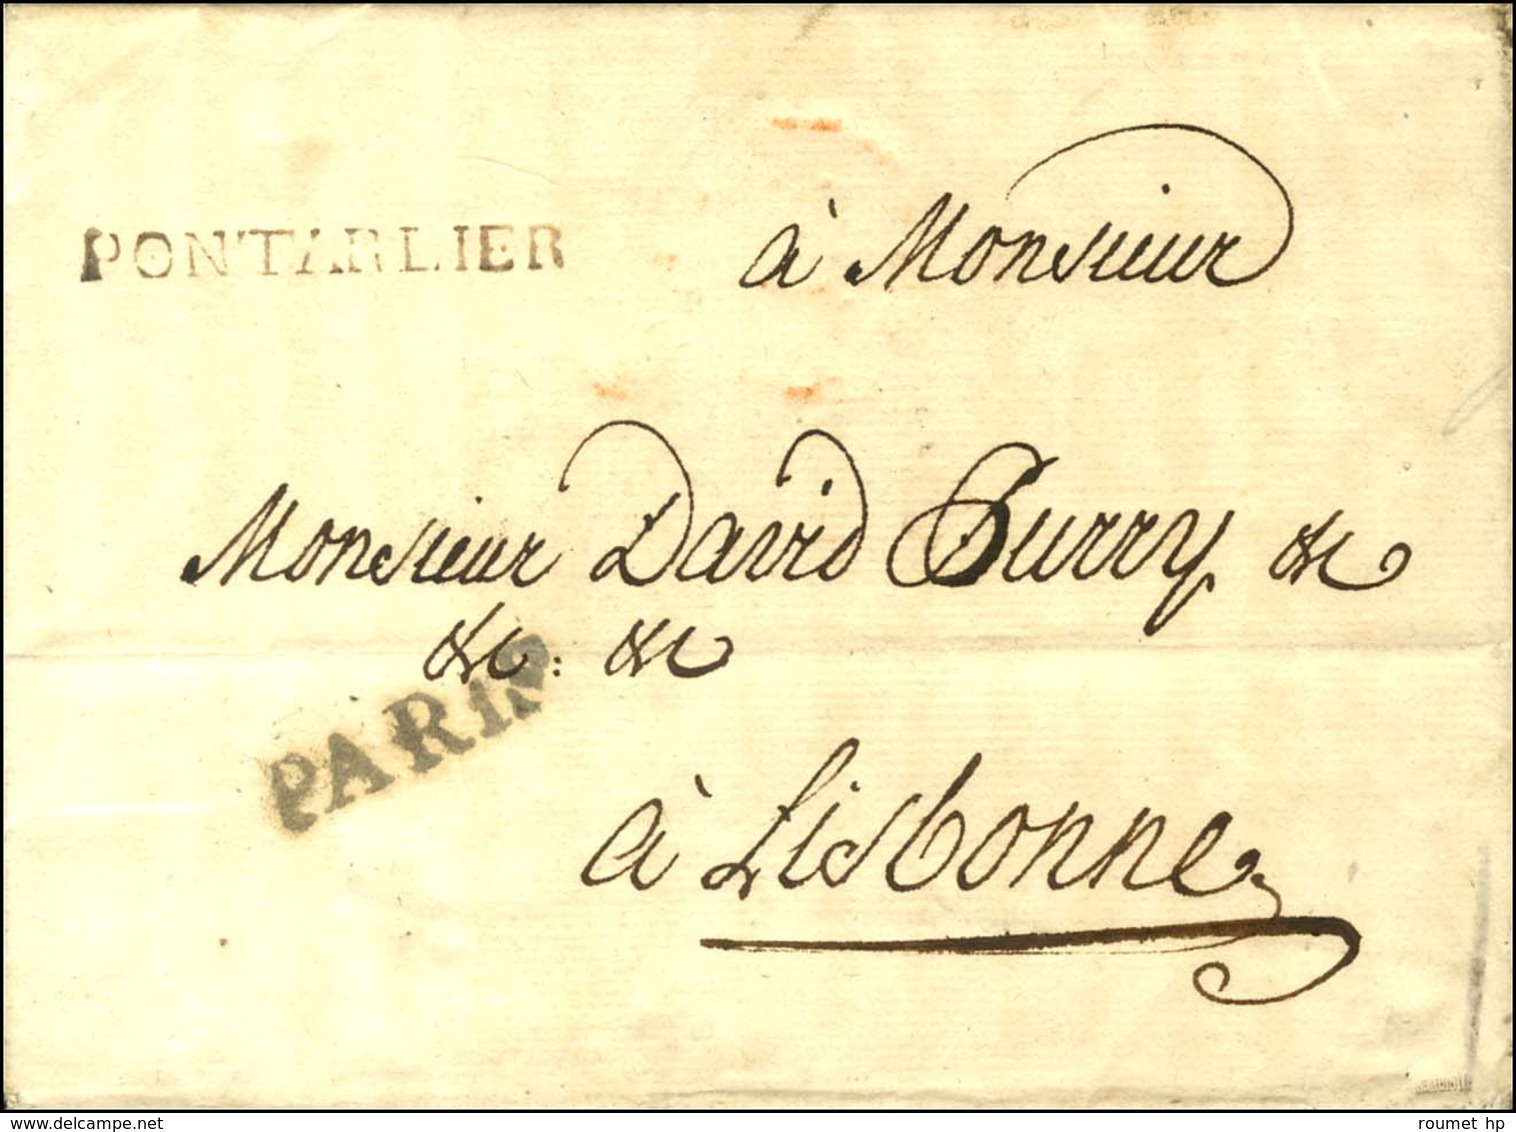 PONTARLIER
à Monsieur
Monsieur David Burry &c
&c: &c
PARIS
à Lisbonne
delcampe.net
roumet_hp